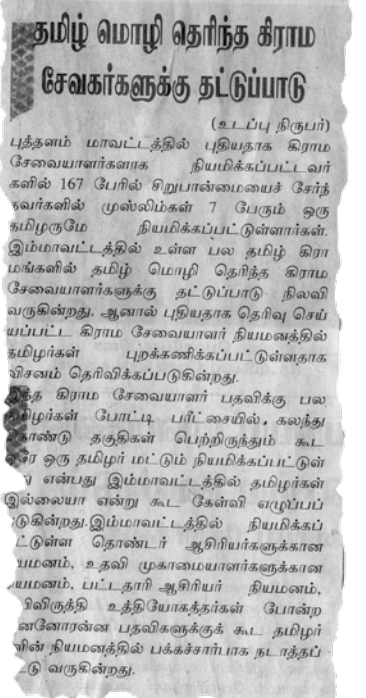 தமிழ் மொழி தெரிந்த கிராம
சேவகர்களுக்கு தட்டுப்பாடு
(உடப்பு நிருபர்)
புத்தளம் மாவட்டத்தில் புதியதாக கிராம
சேவையாளர்களாக நியமிக்கப்பட்டவர்
களில் 167 பேரில் சிறுபான்மையைச் சேர்ந்
தவர்களில் முஸ்லிம்கள் 7 பேரும் ஒரு
தமிழருமே நியமிக்கப்பட்டுள்ளார்கள்.
இம்மாவட்டத்தில் உள்ள பல தமிழ் கிரா
மங்களில் தமிழ் மொழி தெரிந்த கிராம
சேவையாளர்களுக்கு தட்டுப்பாடு நிலவி
வருகின்றது. ஆனால் புதியதாக தெரிவு செய்
யப்பட்ட கிராம சேவையாளர் நியமனத்தில்
தமிழர்கள் புறக்கணிக்கப்பட்டுள்ளதாக
விசனம் தெரிவிக்கப்படுகின்றது.
இந்த கிராம சேவையாளர் பதவிக்கு பல
தமிழர்கள் போட்டி பரீட்சையில், கலந்து
கொண்டு தகுதிகள் பெற்றிருந்தும் கூட
ஒரே ஒரு தமிழர் மட்டும் நியமிக்கப்பட்டுள்
து என்பது இம்மாவட்டத்தில் தமிழர்கள்
இல்லையா என்று கூட கேள்வி எழுப்பப்
டுகின்றது.இம்மாவட்டத்தில் நியமிக்கப்
ட்டுள்ள தொண்டர் ஆசிரியர்களுக்கான
யமனம், உதவி முகாமையாளர்களுக்கான
யமனம், பட்டதாரி ஆசிரியர் நியமனம்,
பிவிருத்தி உத்தியோகத்தர்கள் போன்ற
னனோரன்ன பதவிகளுக்குக் கூட தமிழர்
ளின் நியமனத்தில் பக்கச்சார்பாக நடாத்தப்
ட்டு வருகின்றது.